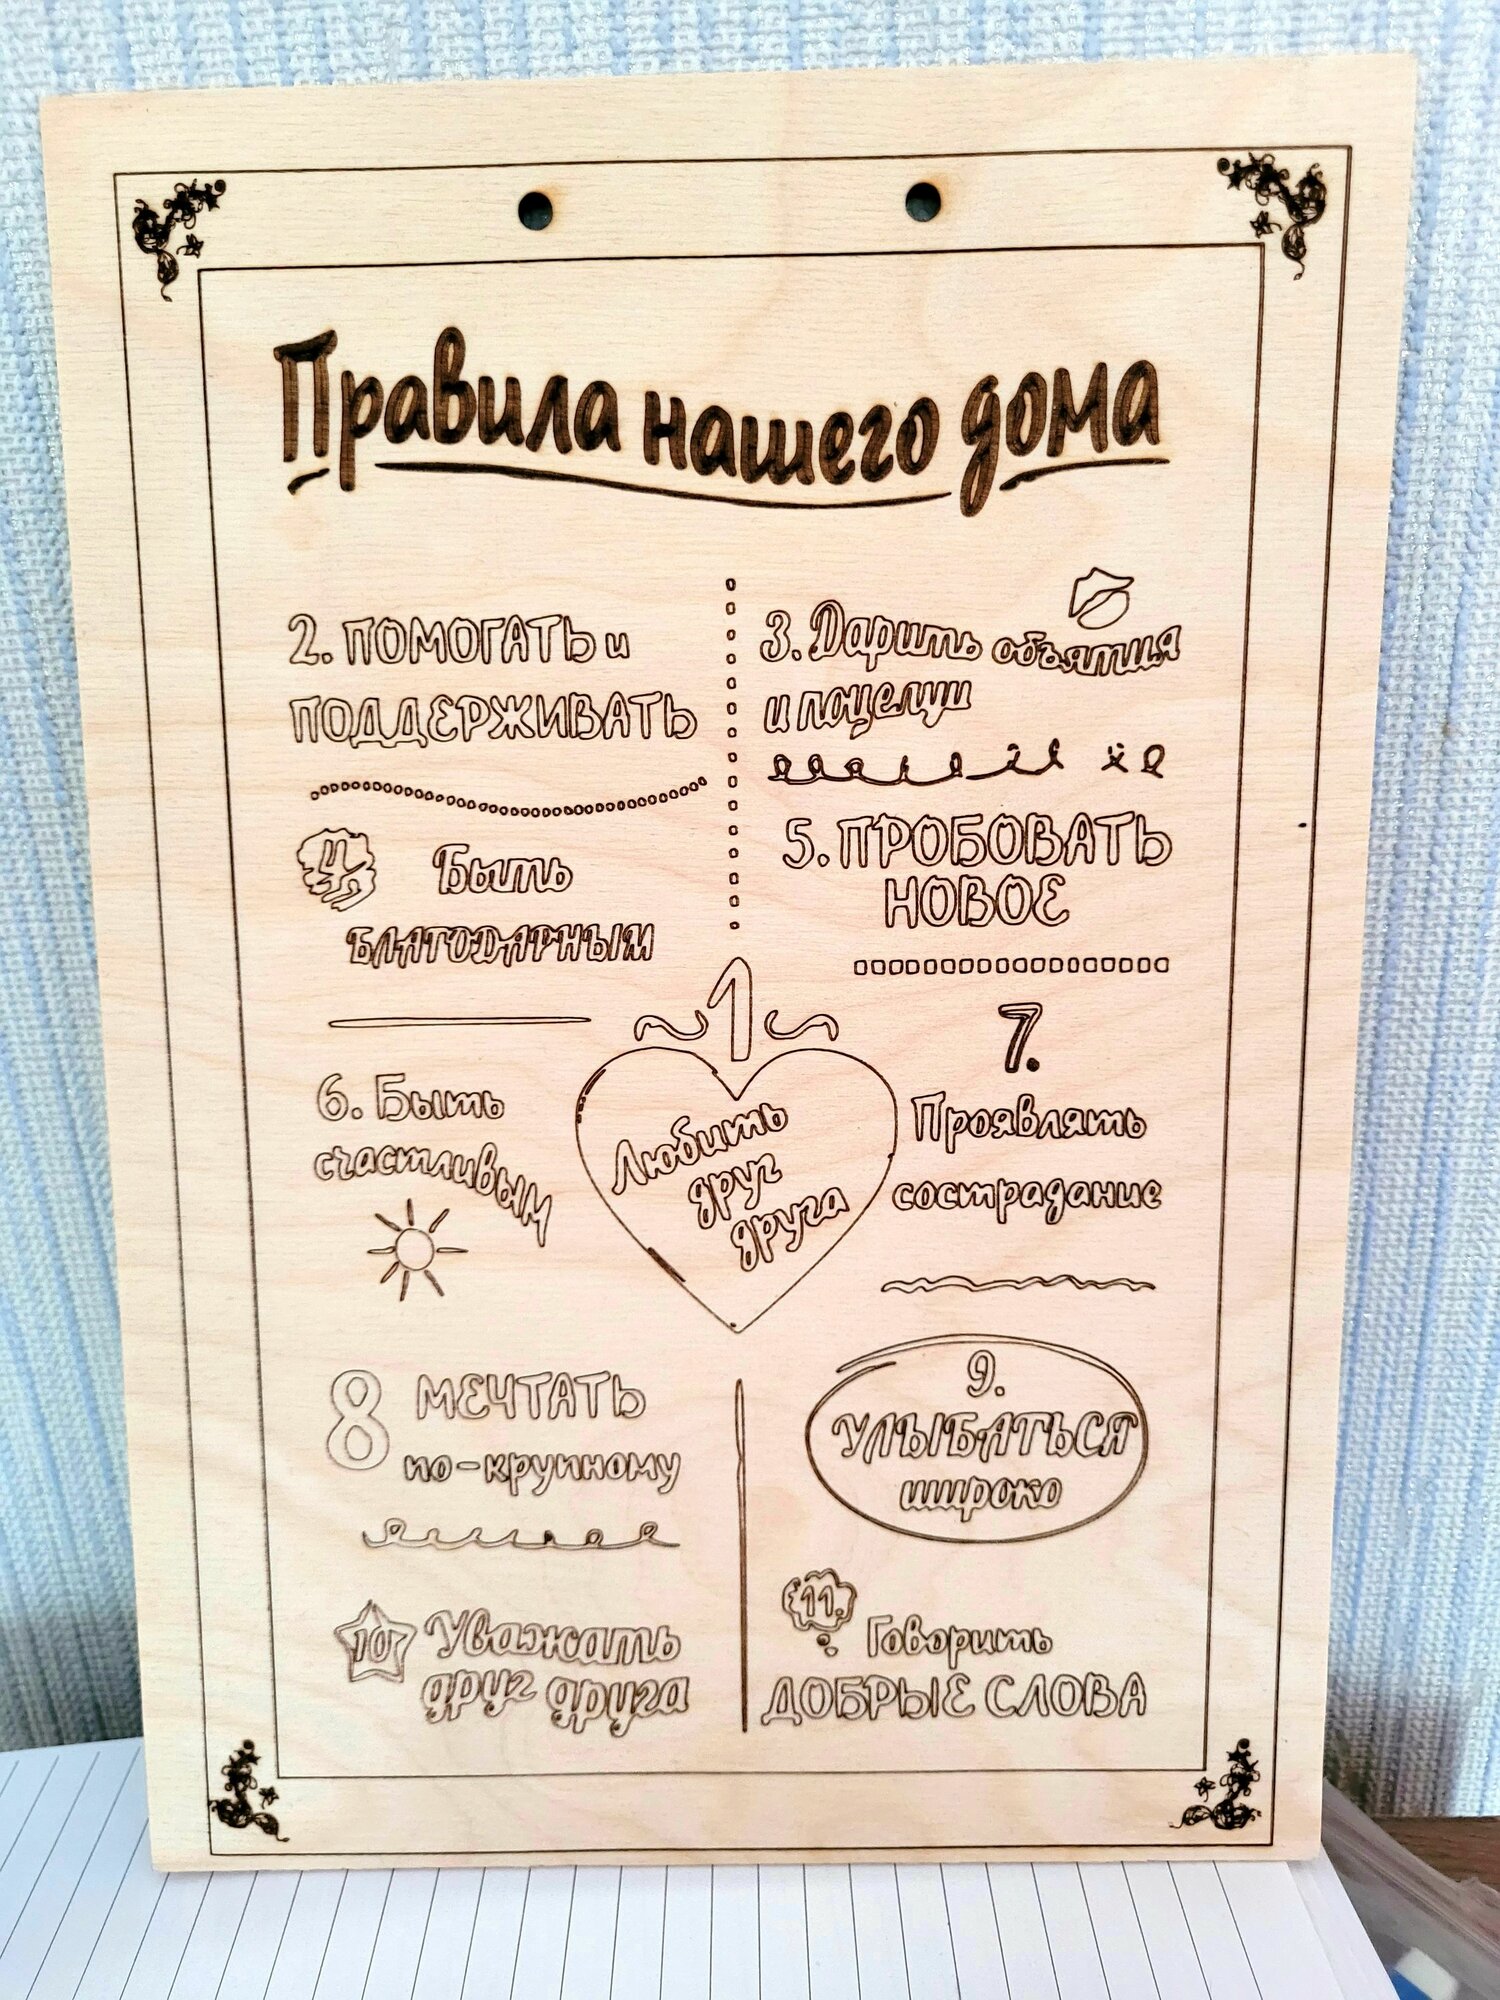 Правила нашего дома
2. ПОМОГАТЬ и
ПОДДЕРЖИВАТЬ
3. Дарить объятия
и поцелуи
4. Быть
БЛАГОДАРНЫМ
5. ПРОБОВАТЬ
НОВОЕ
1
Любить
друг
друга
6. Быть
счастливым
7.
Проявлять
сострадание
8 МЕЧТАТЬ
по-крупному
9.
УЛЫБАТЬСЯ
широко
10 Уважать
друг друга
11. Говорить
ДОБРЫЕ СЛОВА